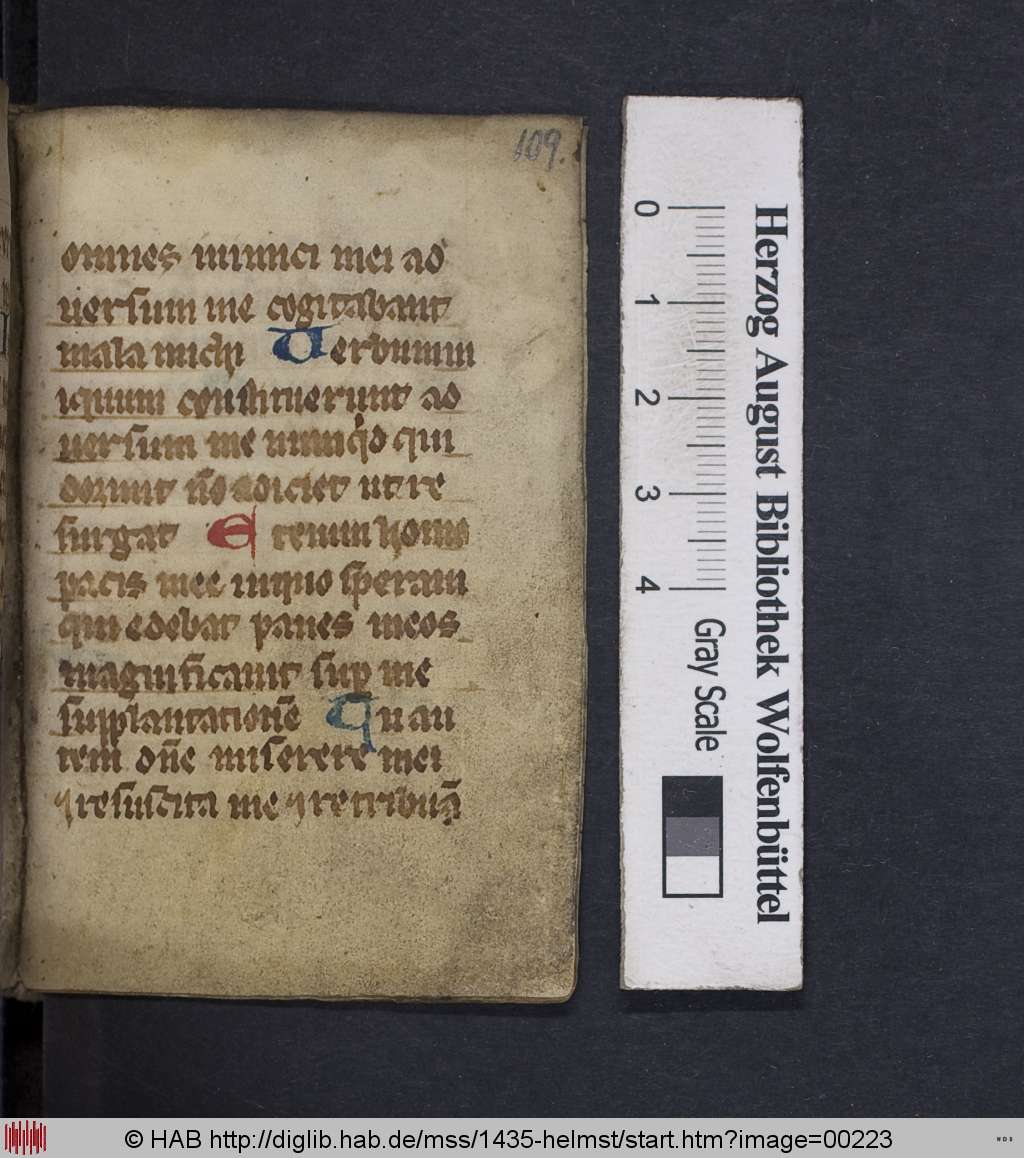 109.
omnes inimici mei ad
uersum me cogitabant
mala michi Verbum in
iquum constituerunt ad
uersum me nunqd qui
dormit nō adiciet ut re
surgat Etenim homo
pacis mee in quo speraui
qui edebat panes meos
magnificauit sup me
supplantationē Tu au
tem dn̄e miserere mei
⁊ resuscita me ⁊ retribuā
0
1
2
3
4
Gray Scale
Herzog August Bibliothek Wolfenbüttel
© HAB http://diglib.hab.de/mss/1435-helmst/start.htm?image=00223